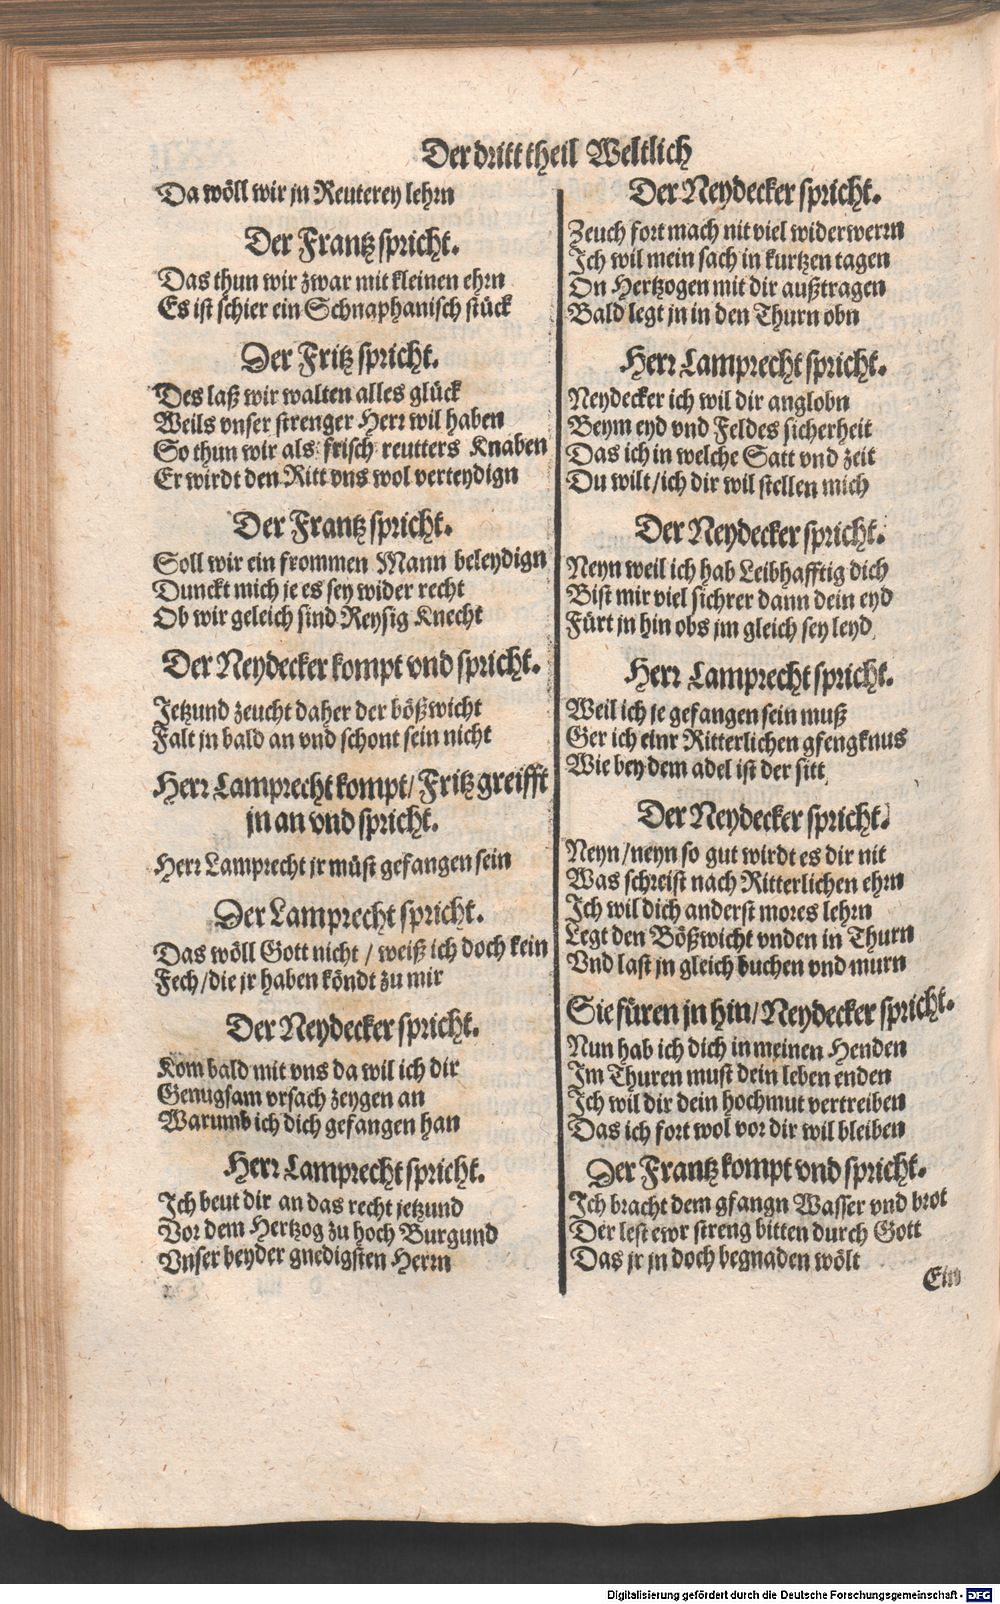 Der dritt theil Weltlich
Da wöll wir jn Reuterey lehrn
Der Frantz spricht.
Das thun wir zwar mit kleinen ehrn
Es ist schier ein Schnaphanisch stück
Der Fritz spricht.
Des laß wir walten alles glück
Weils vnser strenger Herr wil haben
So thun wir als frisch reutters Knaben
Er wirdt den Ritt vns wol verteydign
Der Frantz spricht.
Soll wir ein frommen Mann beleydign
Dunckt mich je es sey wider recht
Ob wir geleich sind Reysig Knecht
Der Neydecker kompt vnd spricht.
Jetzund zeucht daher der bößwicht
Falt jn bald an vnd schont sein nicht
Herr Lamprecht kompt/ Fritz greifft
jn an vnd spricht.
Herr Lamprecht jr müst gefangen sein
Der Lamprecht spricht.
Das wöll Gott nicht / weiß ich doch kein
Fech/die jr haben köndt zu mir
Der Neydecker spricht.
Kom bald mit vns da wil ich dir
Genugsam vrsach zeygen an
Warumb ich dich gefangen han
Herr Lamprecht spricht.
Ich beut dir an das recht jetzund
Vor dem Hertzog zu hoch Burgund
Vnser beyder gnedigsten Herrn
Der Neydecker spricht.
Zeuch fort mach nit viel widerwerrn
Ich wil mein sach in kurtzen tagen
On Hertzogen mit dir außtragen
Bald legt jn in den Thurn obn
Herr Lamprecht spricht.
Neydecker ich wil dir anglobn
Beym eyd vnd Feldes sicherheit
Das ich in welche Satt vnd zeit
Du wilt/ich dir wil stellen mich
Der Neydecker spricht.
Neyn weil ich hab Leibhafftig dich
Bist mir viel sichrer dann dein eyd
Fürt jn hin obs jm gleich sey leyd
Herr Lamprecht spricht.
Weil ich je gefangen sein muß
Ger ich einr Ritterlichen gfengknus
Wie bey dem adel ist der sitt
Der Neydecker spricht.
Neyn/neyn so gut wirdt es dir nit
Was schreist nach Ritterlichen ehrn
Ich wil dich anderst mores lehrn
Legt den Bößwicht vnden in Thurn
Vnd last jn gleich buchen vnd murn
Sie füren jn hin/Neydecker spricht.
Nun hab ich dich in meinen Henden
Im Thuren must dein leben enden
Ich wil dir dein hochmut vertreiben
Das ich fort wol vor dir wil bleiben
Der Frantz kompt vnd spricht.
Ich bracht dem gfangn Wasser vnd brot
Der lest ewr streng bitten durch Gott
Das jr jn doch begnaden wölt
Ein
Digitalisierung gefördert durch die Deutsche Forschungsgemeinschaft - DFG